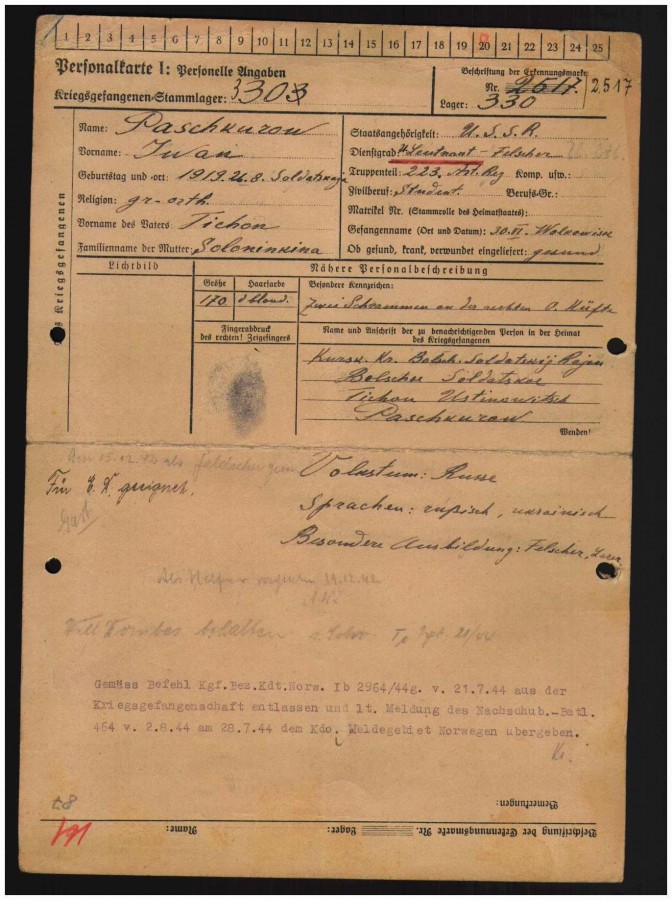 1 2 3 4 5 6 7 8 9 10 11 12 13 14 15 16 17 18 19 20 21 22 23 24 25
Personalkarte I: Personelle Angaben
Kriegsgefangenen-Stammlager: 330
Beschriftung der Erkennungsmarke
Nr. 2517. 2517
Lager: 330
des Kriegsgefangenen
Name: Paschkurow
Vorname: Iwan
Geburtstag und -ort: 1919.26.8. Soldatskaja
Religion: gr-orth.
Vorname des Vaters: Tichon
Familienname der Mutter: Soloninkina
Staatsangehörigkeit: U.S.S.R.
Dienstgrad: U. Leutnant - Felscher
Truppenteil: 223. Art. Reg Komp. usw.:
Zivilberuf: Student. Berufs-Gr.:
Matrikel Nr. (Stammrolle des Heimatstaates):
Gefangenname (Ort und Datum): 30.VI. Wolkowisk
Ob gesund, krank, verwundet eingeliefert: gesund
Lichtbild
Nähere Personalbeschreibung
Größe Haarfarbe
170 d blond.
Besondere Kennzeichen:
Zwei Schrammen an der rechten O. Hüfte
Fingerabdruck
des rechten! Zeigefingers
Name und Anschrift der zu benachrichtigenden Person in der Heimat
des Kriegsgefangenen
Kursk. Kr. Bolsch. Soldatskij Rajon
Bolschoe Soldatskoe
Tichon Ustinowitsch
Paschkurow
Wenden!
15.12.42 als Feldscher
Für E. D. geeignet.
Volkstum: Russe
Sprachen: rußisch, ukrainisch
Besondere Ausbildung: Felscher,
Als Helfer 19.12.42
Will behalten
Gemäss Befehl Kgf.Bez.Kdt.Norw. Ib 2964/44g. v. 21.7.44 aus der
Kriegsgefangenschaft entlassen und lt. Meldung des Nachschub.-Batl.
464 v. 2.8.44 am 28.7.44 dem Kdo. Meldegebiet Norwegen übergeben.
Bemerkungen:
Beschriftung der Erkennungsmarke Nr. Lager: Name: